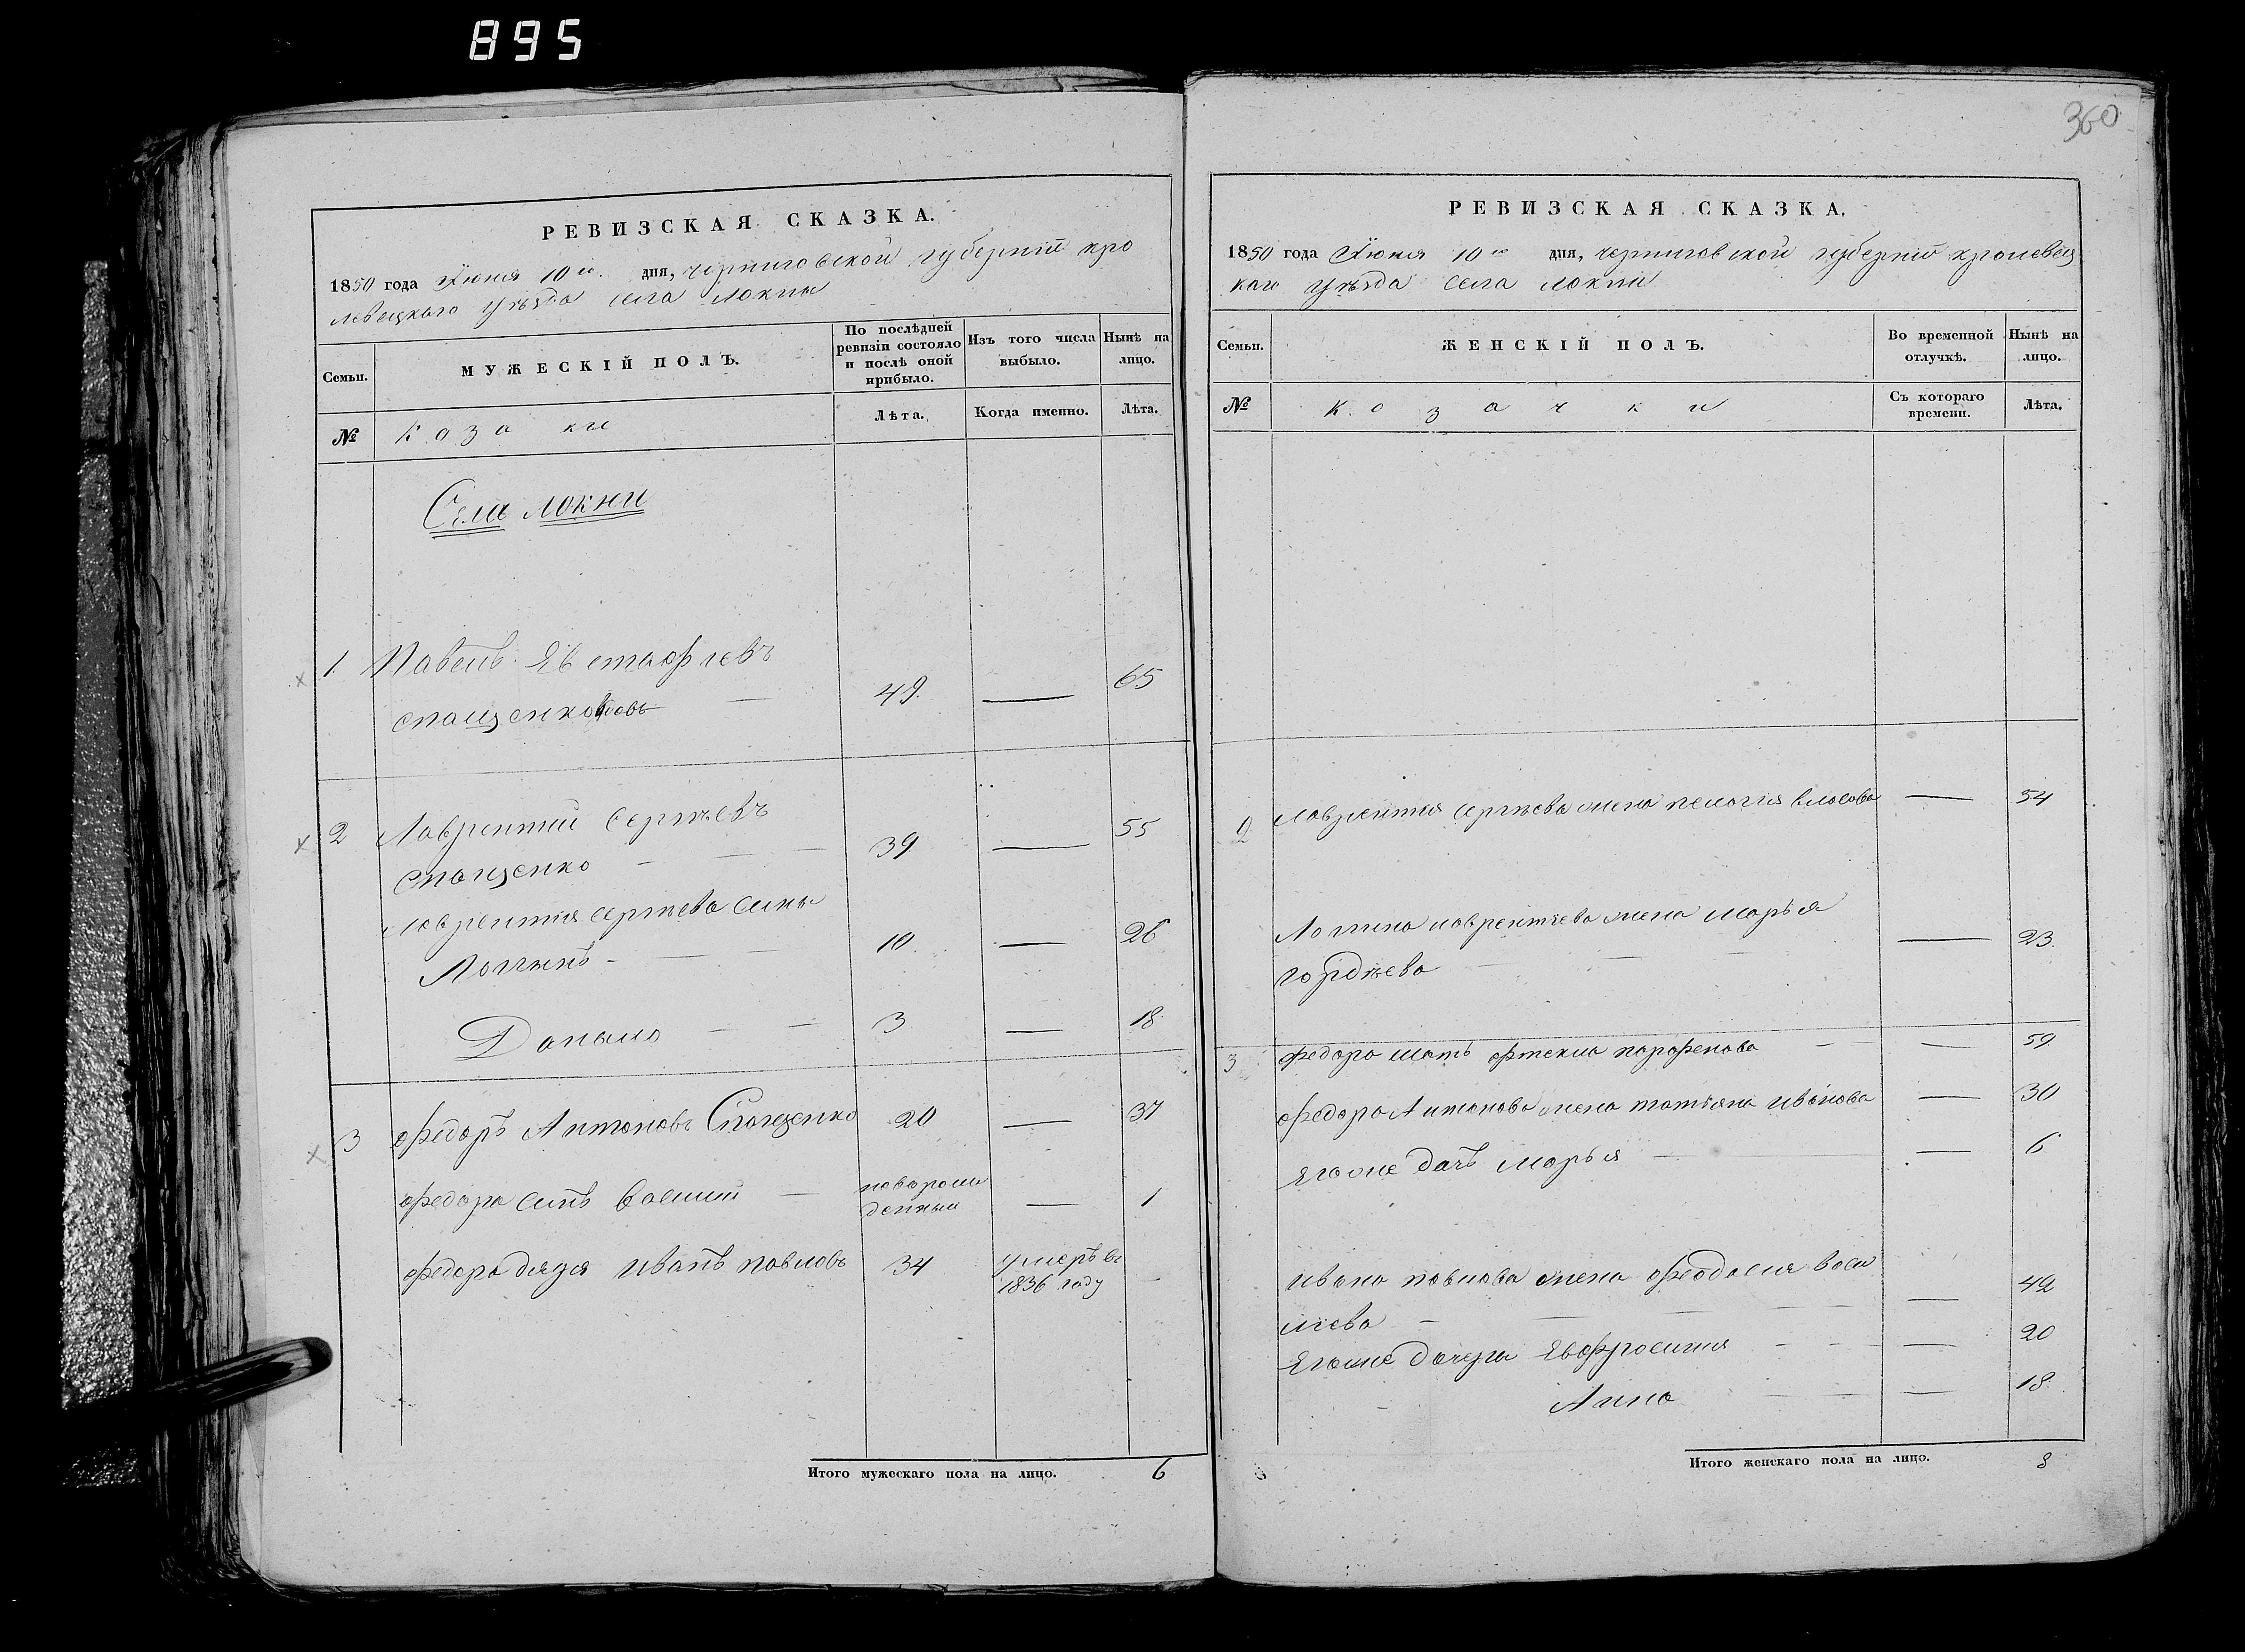 895
360
РЕВИЗСКАЯ СКАЗКА.
1850 года Июня 10го дня, черниговской губернии кро
левецкаго уѣзда села локни
Семьи.
МУЖЕСКІЙ ПОЛЪ.
По послѣдней ревизіи состояло и послѣ оной прибыло.
Изъ того числа выбыло.
Нынѣ на лицо.
№
Козаки
Лѣта.
Когда именно.
Лѣта.
Села локни
1. Павелъ Евстафіевъ
спащенко 49. — 65
2 Лаврентий Сергѣевъ
спащенко 39 — 55
лаврентия сергѣева сины
Логгинъ 10. — 26
Данило 3 — 18.
3 федоръ Антоновъ Спащенко 20 — 37
федора синъ василий — новорож
денный — 1
федора дядя иванъ павловъ 34 умеръ въ
1836 году —
Итого мужескаго пола на лицо. 6
РЕВИЗСКАЯ СКАЗКА.
1850 года Июня 10го дня, черниговской губернии кролевец
каго уѣзда села локни
Семьи.
ЖЕНСКІЙ ПОЛЪ.
Во временной отлучкѣ.
Нынѣ на лицо.
№
козачки
Съ котораго времени.
Лѣта.
2 лаврентия сергѣева жена пелагия власова — 54
Логгина лаврентиева жена марья
гордѣева — 23.
3 федора мать фтекла парфенова — 59
федора Антонова жена татьяна иванова — 30
Егоже дачь марья — 6
ивана павлова жена феодосия васи
лиева — 42
Егоже дочери Евфросиния — 20
Анна — 18.
Итого женскаго пола на лицо. 8